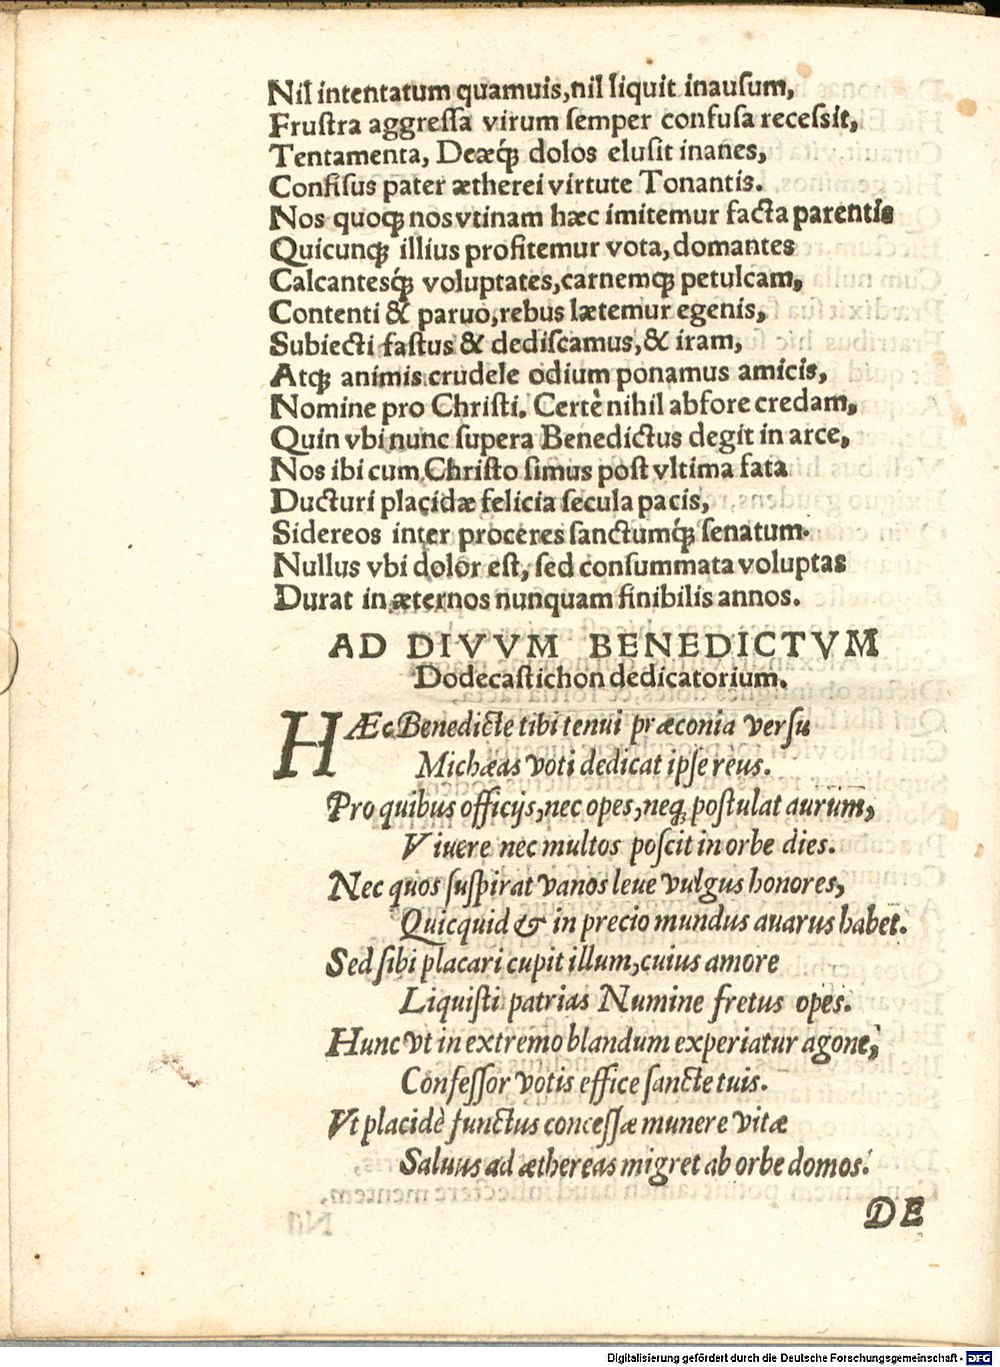 Nil intentatum quamuis, nil liquit inausum,
Frustra aggressa virum semper confusa recessit,
Tentamenta, Deæq́ꝫ dolos elusit inanes,
Confisus pater ætherei virtute Tonantis.
Nos quoqꝫ nos vtinam hæc imitemur facta parentis
Quicunqꝫ illius profitemur vota, domantes
Calcantesq́ꝫ voluptates, carnemqꝫ petulcam,
Contenti & paruo, rebus lætemur egenis,
Subiecti fastus & dediscamus, & iram,
Atqꝫ animis crudele odium ponamus amicis,
Nomine pro Christi. Certè nihil abfore credam,
Quin vbi nunc supera Benedictus degit in arce,
Nos ibi cum Christo simus post vltima fata
Ducturi placidæ felicia secula pacis,
Sidereos inter proceres sanctumq́ꝫ senatum.
Nullus vbi dolor est, sed consummata voluptas
Durat in æternos nunquam finibilis annos.
AD DIVVM BENEDICTVM
Dodecastichon dedicatorium.
HÆc Benedicte tibi tenui præconia versu
Michæas voti dedicat ipse reus.
Pro quibus officijs, nec opes, neqꝫ postulat aurum,
Viuere nec multos poscit in orbe dies.
Nec quos suspirat vanos leue vulgus honores,
Quicquid & in precio mundus auarus habet.
Sed sibi placari cupit illum, cuius amore
Liquisti patrias Numine fretus opes.
Hunc vt in extremo blandum experiatur agone,
Confessor votis effice sancte tuis.
Vt placidè functus concessæ munere vitæ
Saluus ad æthereas migret ab orbe domos.
DE
Digitalisierung gefördert durch die Deutsche Forschungsgemeinschaft - DFG